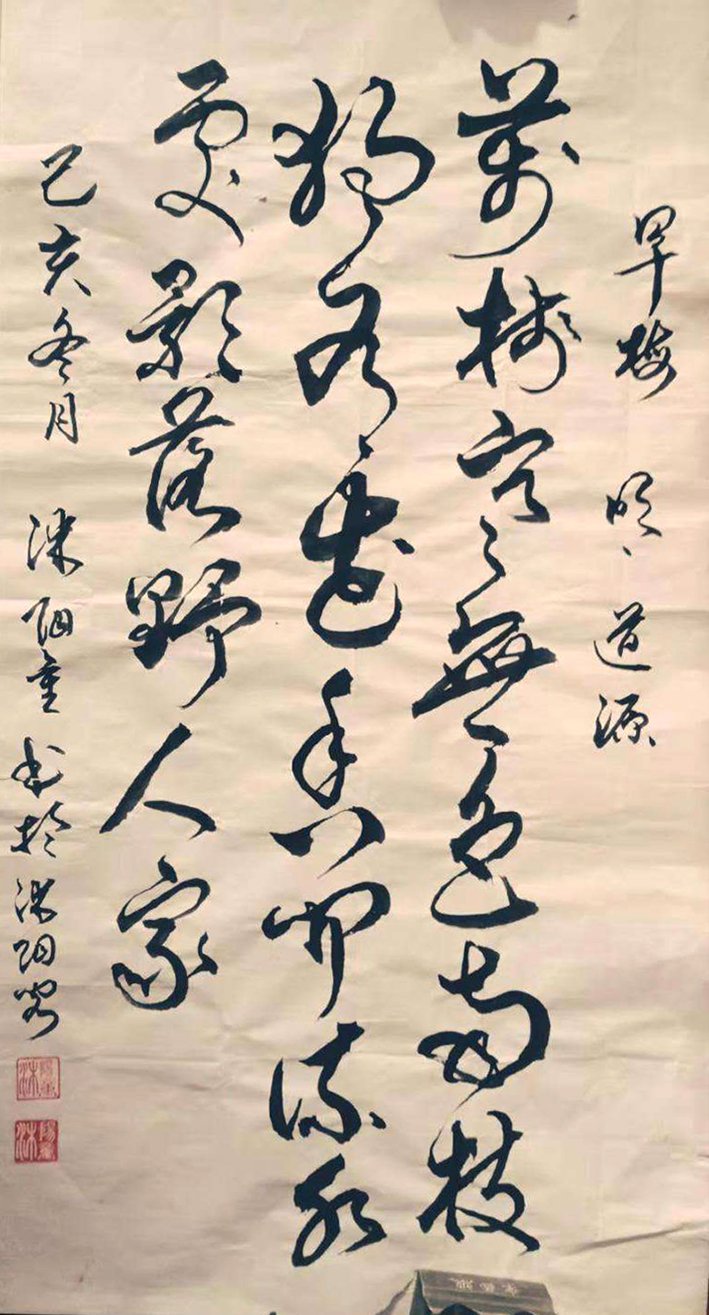 早梅 明、道源
萬樹寒無色南枝
獨有花香聞流水
處影落野人家
己亥冬月 沭阳童 书於沭阳